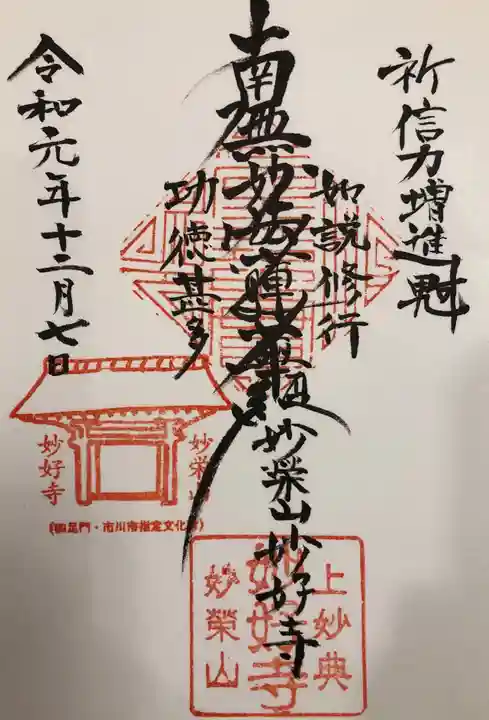 祈信力増進尉
如説修行
南無妙法蓮華経
妙榮山妙好寺
功徳甚多
令和元年十二月七日
妙栄山
妙好寺
(四足門・市川市指定文化財)
上妙典
妙好寺
妙榮山